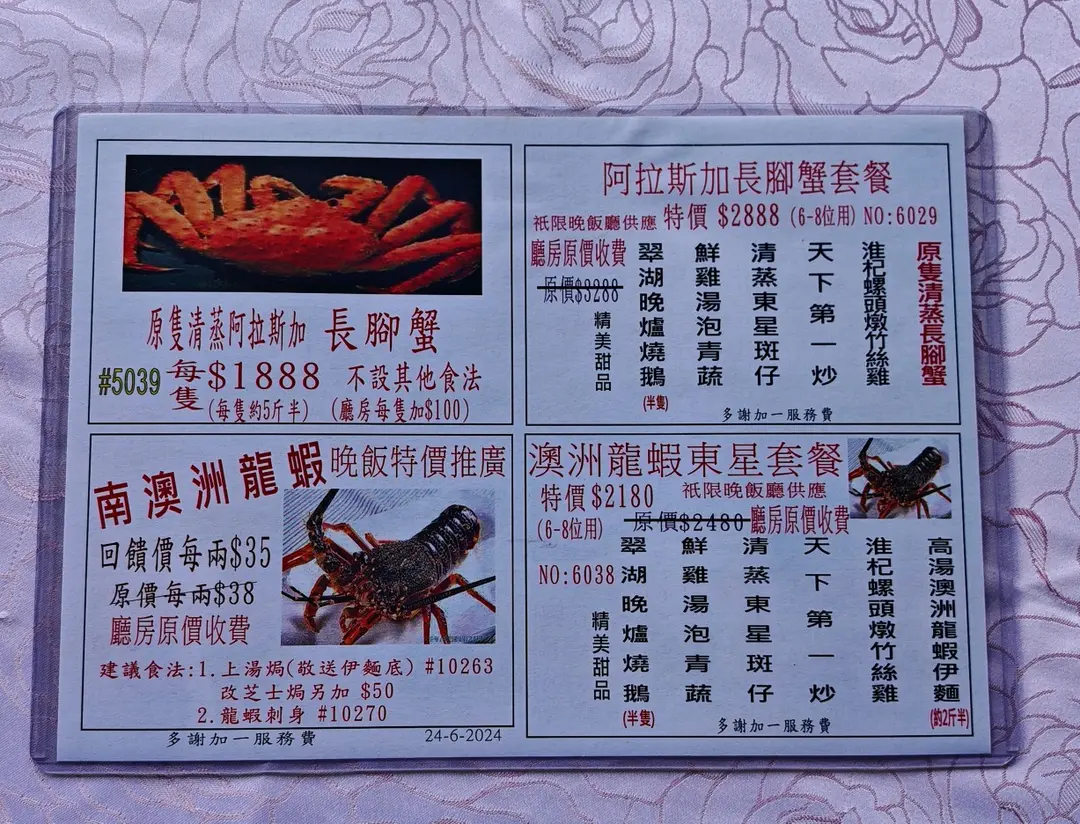 原隻清蒸阿拉斯加 長腳蟹
#5039 每隻 $1888 不設其他食法
(每隻約5斤半) (廳房每隻加$100)
阿拉斯加長腳蟹套餐
祇限晚飯廳供應 特價 $2888 (6-8位用) NO:6029
廳房原價收費
原價$3288
原隻清蒸長腳蟹
淮杞螺頭燉竹絲雞
天下第一炒
清蒸東星斑仔
鮮雞湯泡青蔬
翠湖晚爐燒鵝
(半隻)
精美甜品
多謝加一服務費
南澳洲龍蝦 晚飯特價推廣
回饋價每兩$35
原價每兩$38
廳房原價收費
建議食法:1.上湯焗(敬送伊麵底) #10263
改芝士焗另加 $50
2.龍蝦刺身 #10270
多謝加一服務費
24-6-2024
澳洲龍蝦東星套餐
特價 $2180 祇限晚飯廳供應
(6-8位用) 原價$2480 廳房原價收費
NO:6038
高湯澳洲龍蝦伊麵
(約2斤半)
淮杞螺頭燉竹絲雞
天下第一炒
清蒸東星斑仔
鮮雞湯泡青蔬
翠湖晚爐燒鵝
(半隻)
精美甜品
多謝加一服務費